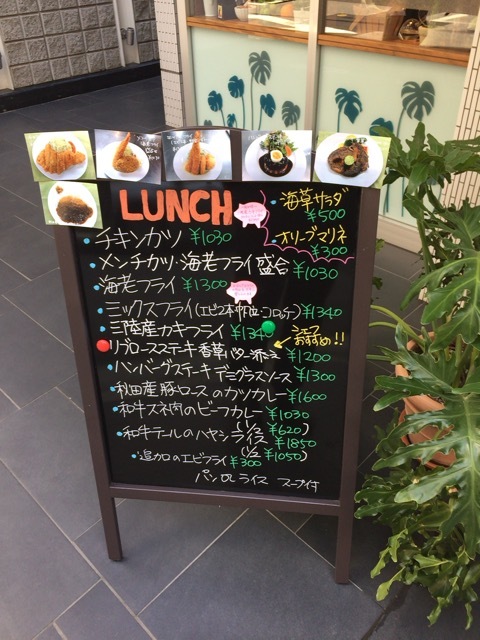 LUNCH
海草サラダ
¥500
オリーブマリネ
¥300
チキンカツ ¥1030
メンチカツ・海老フライ盛合 ¥1030
海老フライ ¥1300
ミックスフライ(エビ2本 帆立・コロッケ) ¥1340
三陸産カキフライ ¥1340
シェフおすすめ!!
リブロースステーキ 香草バター添え ¥1200
ハンバーグステーキ デミグラスソース ¥1300
秋田産豚ロースのカツカレー ¥1600
和牛スネ肉のビーフカレー ¥1030
(1/2 ¥620)
和牛テールのハヤシライス ¥1850
(1/2 ¥1050)
追加のエビフライ ¥300
パン or ライス スープ付